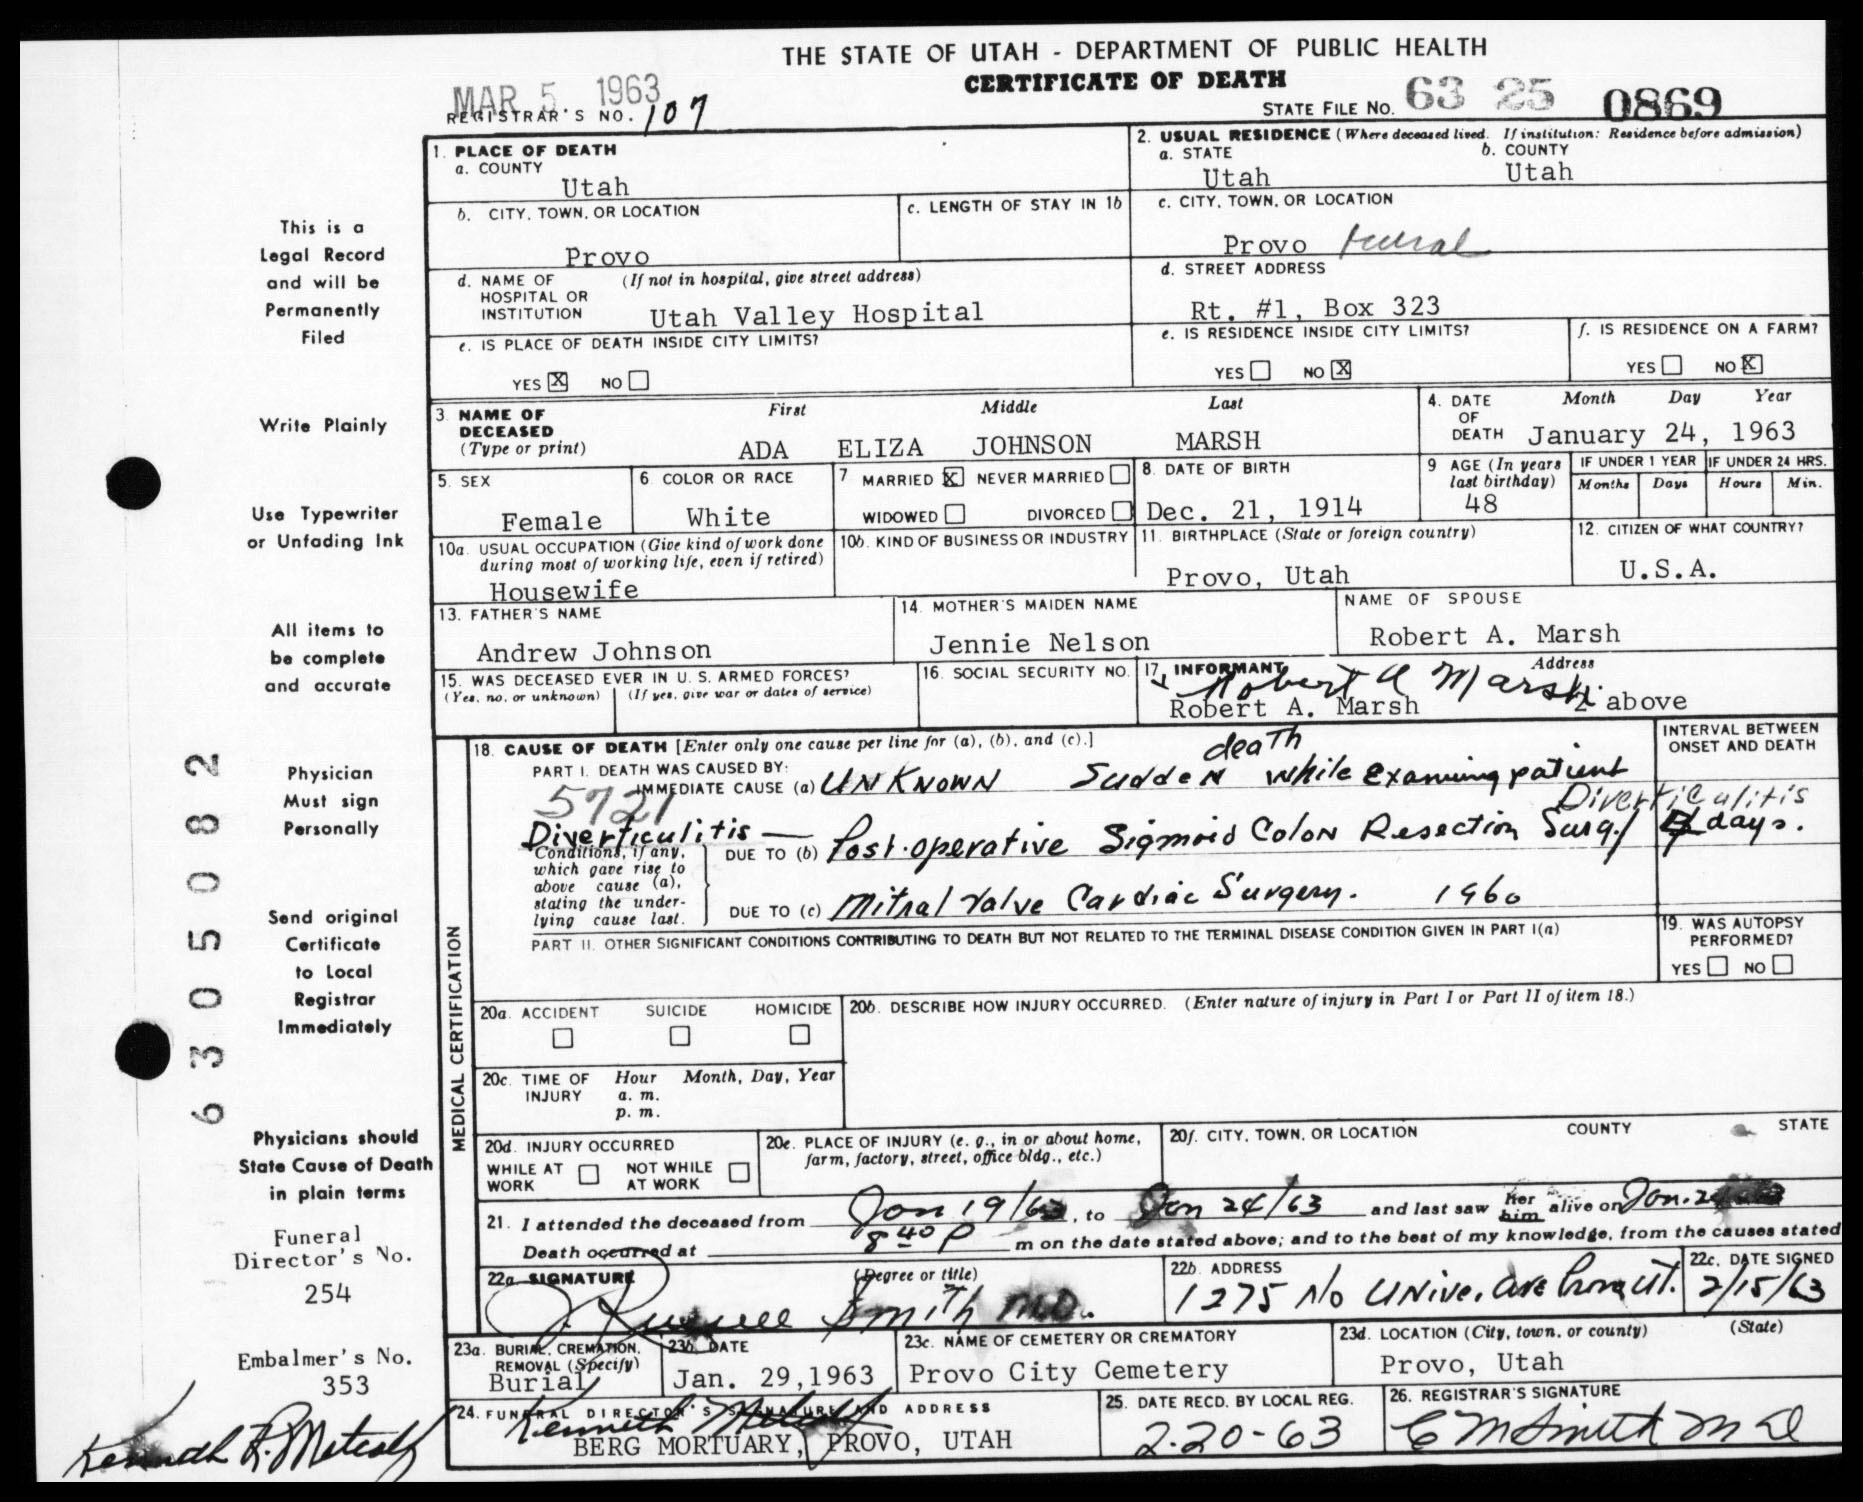 THE STATE OF UTAH - DEPARTMENT OF PUBLIC HEALTH
CERTIFICATE OF DEATH
MAR 5 1963
REGISTRAR'S NO. 107
STATE FILE NO. 63 25 0869
1. PLACE OF DEATH
a. COUNTY
Utah
2. USUAL RESIDENCE (Where deceased lived. If institution: Residence before admission)
a. STATE
Utah
b. COUNTY
Utah
b. CITY, TOWN, OR LOCATION
Provo
c. LENGTH OF STAY IN 1b
c. CITY, TOWN, OR LOCATION
Provo rural
d. NAME OF HOSPITAL OR INSTITUTION
(If not in hospital, give street address)
Utah Valley Hospital
d. STREET ADDRESS
Rt. #1, Box 323
e. IS PLACE OF DEATH INSIDE CITY LIMITS?
YES X NO
e. IS RESIDENCE INSIDE CITY LIMITS?
YES NO X
f. IS RESIDENCE ON A FARM?
YES NO X
3. NAME OF DECEASED
(Type or print)
First Middle Last
ADA ELIZA JOHNSON MARSH
4. DATE OF DEATH
Month Day Year
January 24, 1963
5. SEX
Female
6 COLOR OR RACE
White
7 MARRIED X NEVER MARRIED
WIDOWED DIVORCED
8. DATE OF BIRTH
Dec. 21, 1914
9 AGE (In years last birthday)
48
IF UNDER 1 YEAR
Months Days
IF UNDER 24 HRS.
Hours Min.
10a. USUAL OCCUPATION (Give kind of work done during most of working life, even if retired)
Housewife
10b. KIND OF BUSINESS OR INDUSTRY
11. BIRTHPLACE (State or foreign country)
Provo, Utah
12. CITIZEN OF WHAT COUNTRY?
U.S.A.
13. FATHER'S NAME
Andrew Johnson
14. MOTHER'S MAIDEN NAME
Jennie Nelson
NAME OF SPOUSE
Robert A. Marsh
15. WAS DECEASED EVER IN U. S. ARMED FORCES?
(Yes, no, or unknown) (If yes, give war or dates of service)
16. SOCIAL SECURITY NO.
17. INFORMANT Address
Robert A Marsh
Robert A. Marsh 2 above
MEDICAL CERTIFICATION
18. CAUSE OF DEATH [Enter only one cause per line for (a), (b), and (c).]
INTERVAL BETWEEN ONSET AND DEATH
PART I. DEATH WAS CAUSED BY:
IMMEDIATE CAUSE (a) UNKNOWN Sudden death while Examining patient
5721
Diverticulitis
Diverticulitis —
Conditions, if any, which gave rise to above cause (a), stating the underlying cause last.
DUE TO (b) Post-operative Sigmoid Colon Resection Surg. days.
DUE TO (c) Mitral Valve Cardiac Surgery. 1960
PART II. OTHER SIGNIFICANT CONDITIONS CONTRIBUTING TO DEATH BUT NOT RELATED TO THE TERMINAL DISEASE CONDITION GIVEN IN PART I(a)
19. WAS AUTOPSY PERFORMED?
YES NO
20a. ACCIDENT SUICIDE HOMICIDE
20b. DESCRIBE HOW INJURY OCCURRED. (Enter nature of injury in Part I or Part II of item 18.)
20c. TIME OF INJURY
Hour Month, Day, Year
a. m.
p. m.
20d. INJURY OCCURRED
WHILE AT WORK NOT WHILE AT WORK
20e. PLACE OF INJURY (e. g., in or about home, farm, factory, street, office bldg., etc.)
20f. CITY, TOWN, OR LOCATION COUNTY STATE
21. I attended the deceased from Jan 19/63, to Jan 24/63 and last saw her him alive on Jan. 24
Death occurred at 8 40 P m on the date stated above; and to the best of my knowledge, from the causes stated
22a. SIGNATURE (Degree or title)
J. Russell Smith M.D.
22b. ADDRESS
1275 No Unive. Ave Provo Ut.
22c. DATE SIGNED
2/15/63
23a. BURIAL, CREMATION, REMOVAL (Specify)
Burial
23b. DATE
Jan. 29,1963
23c. NAME OF CEMETERY OR CREMATORY
Provo City Cemetery
23d. LOCATION (City, town, or county) (State)
Provo, Utah
24. FUNERAL DIRECTOR'S SIGNATURE AND ADDRESS
Kenneth Metcalf
BERG MORTUARY, PROVO, UTAH
25. DATE RECD. BY LOCAL REG.
2-20-63
26. REGISTRAR'S SIGNATURE
C M Smith M D
This is a
Legal Record
and will be
Permanently
Filed
Write Plainly
Use Typewriter
or Unfading Ink
All items to
be complete
and accurate
Physician
Must sign
Personally
Send original
Certificate
to Local
Registrar
Immediately
Physicians should
State Cause of Death
in plain terms
Funeral
Director's No.
254
Embalmer's No.
353
Kenneth R. Metcalf
63 05082